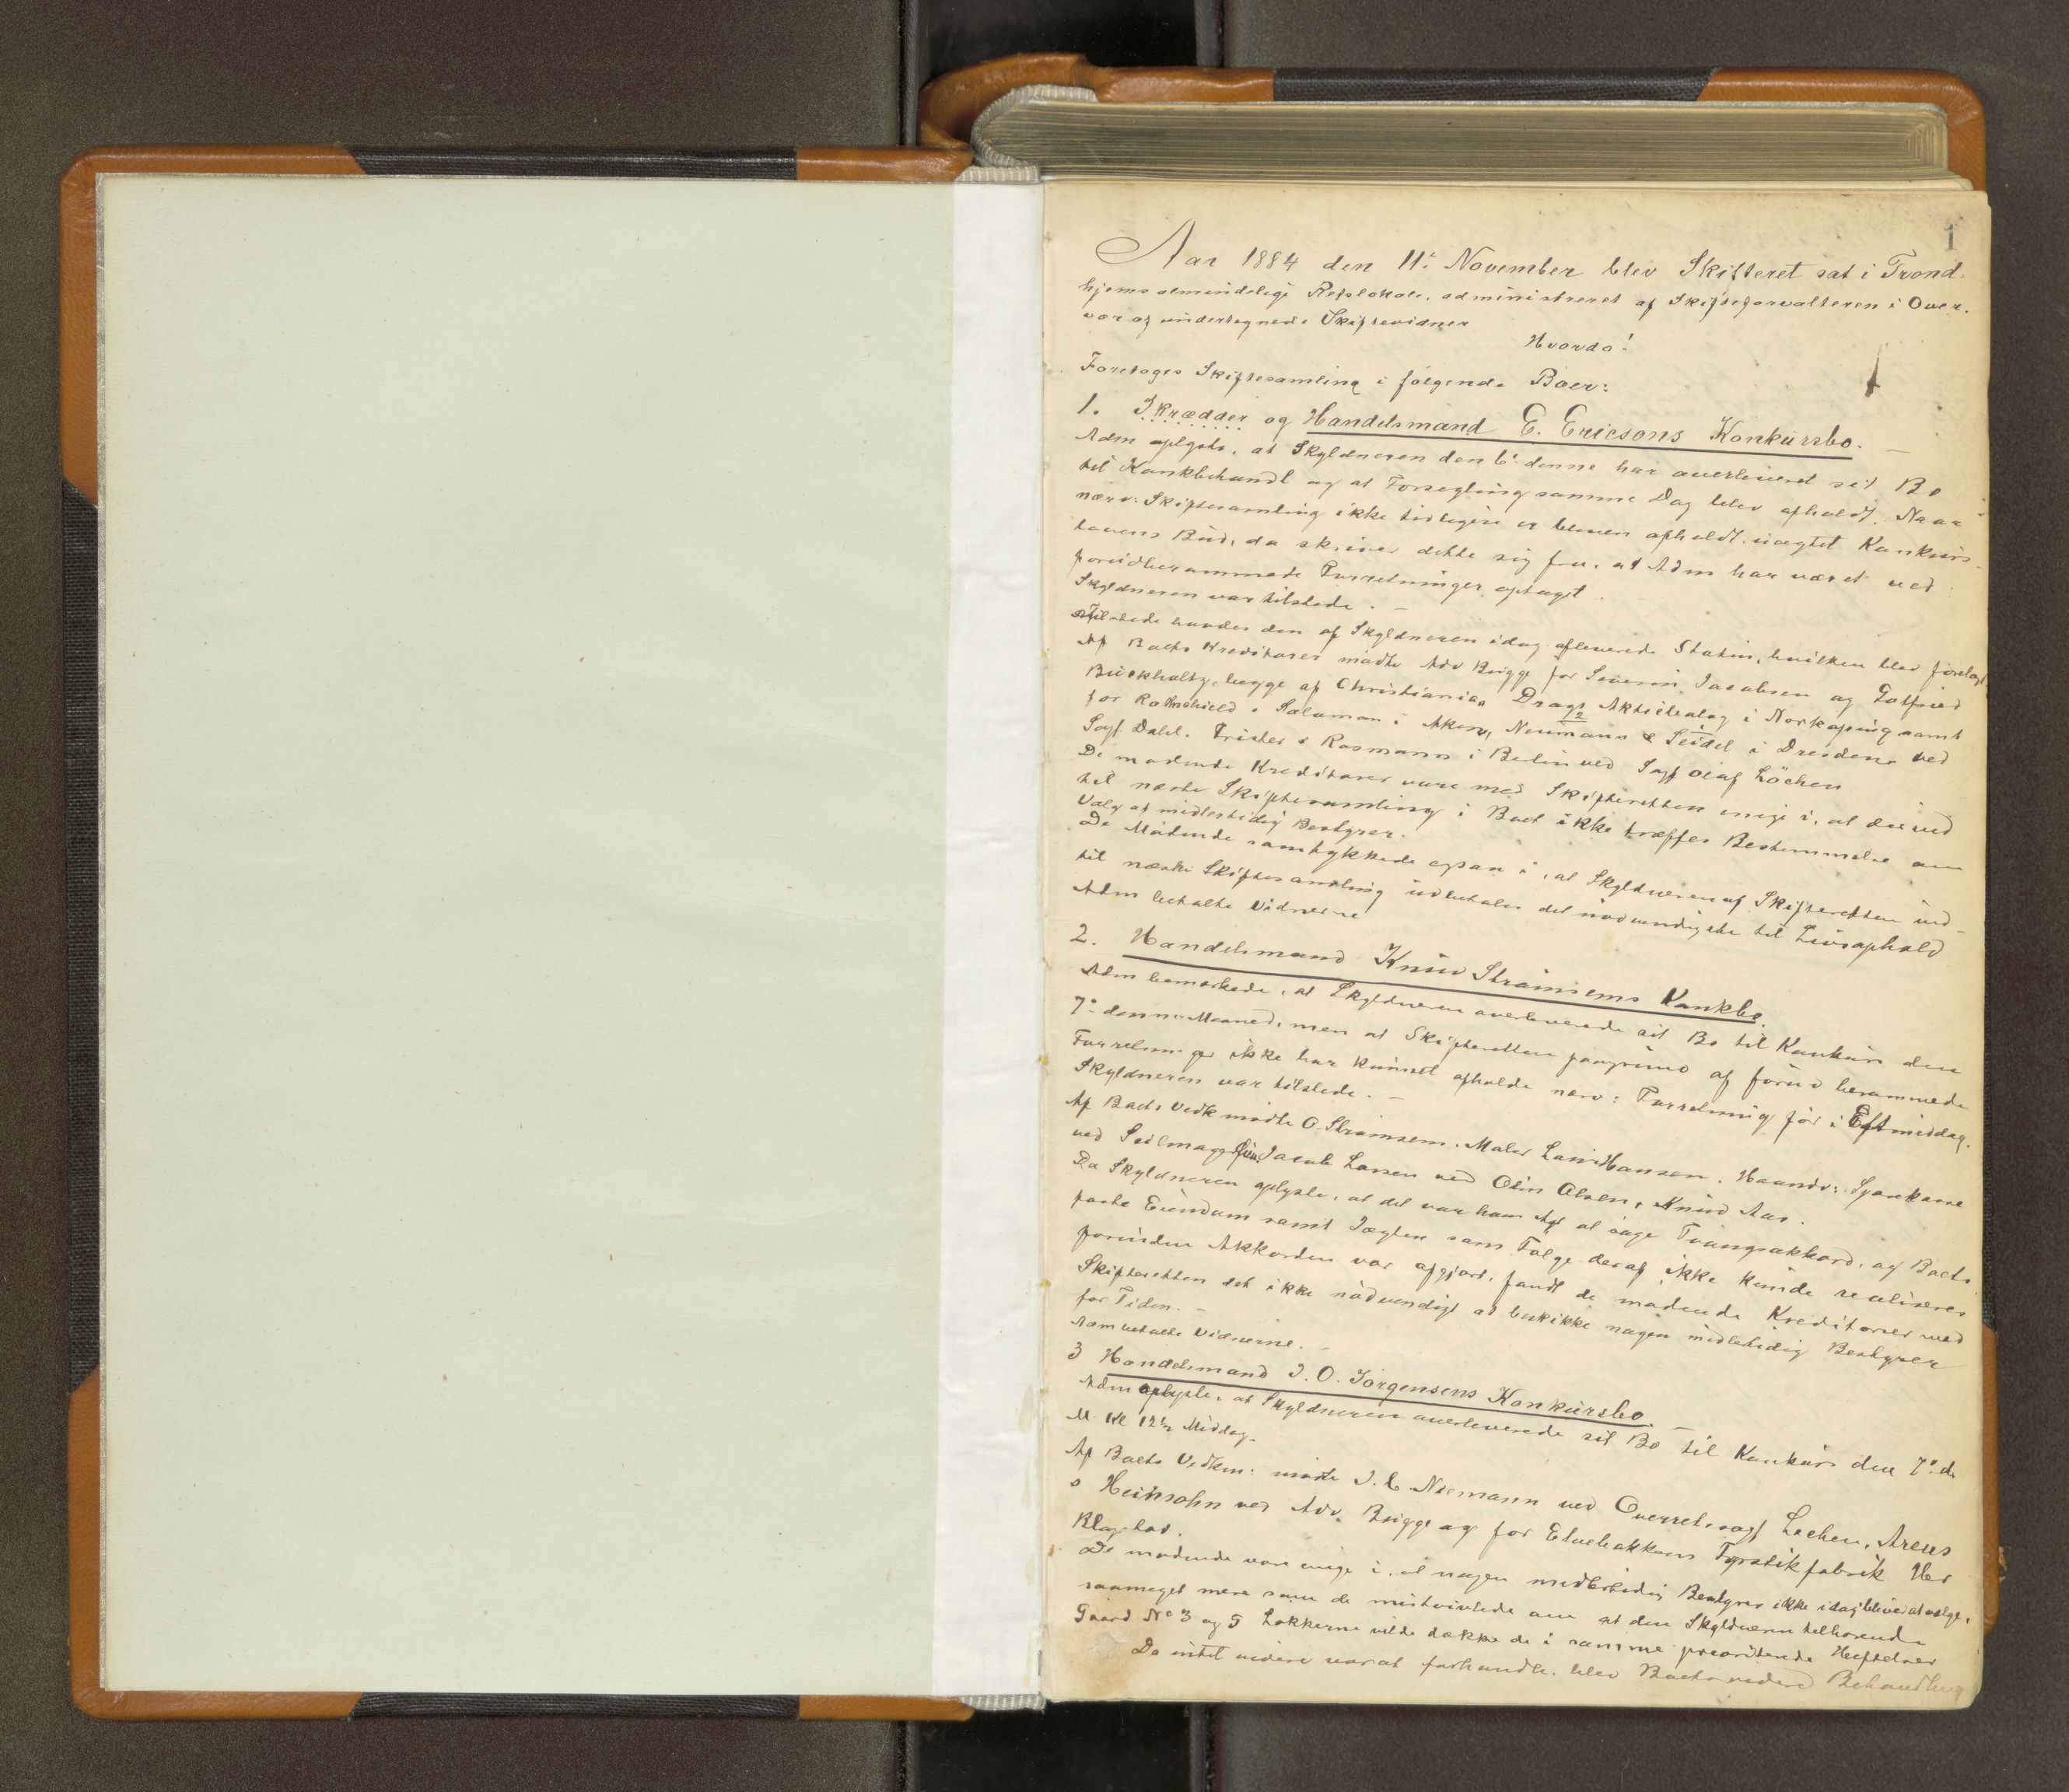 1
Aar 1884 den 11te November blev Skifteret sat i Trond-
hjems almindelige Retslokale, administreret af Skifteforvalteren i Over-
vær af undertegnede Skiftevidner
Hvorda!
Foretoges Skiftesamling i følgende Boer:
1. Skrædder og Handelsmand E. Ericsons Konkursbo. —
Adm oplyste, at Skyldneren den 6te denne har overleveret sit Bo
til Konkbehandl og at Forsegling samme Dag blev afholdt. Naar
nærv: Skiftesamling ikke tidligere er bleven afholdt uagtet Konkurs-
lovens Bud, da skriver dette sig fra, at Adm har været ved
forudberammede Forretninger optaget.
Skyldneren var tilstede. —
Tilstede havdes den af Skyldneren idag afleverede Status, hvilken blev forelagt
Af Boets Kreditorer mødte Adv Brigge for Severin Jacobsen og Gotfried
Buckholtz, begge af Christiania, Drags Aktiebolag i Norkøping samt
for Rothschild & Salomon i Altona, Neumann & Seidel i Dresden ved
Sagf Dahl. Frister & Rosmann i Berlin ved Sagf Olaf Löchen
De mødende Kreditorer vare med Skifteretten enige i, at der ved
til næste Skiftesamling i Boet ikke træffes Bestemmelse om
Valg af midlertidig Bestyrer.
De Mødende samtykkede ogsaa i, at Skyldneren af Skifteretten ind-
til næste Skiftesamling udbetales det nødvendigste til Livsophold
Adm betalte Vidnerne
2. Handelsmand Knud Strømsems Konkbo.
Adm bemærkede, at Skyldneren overleverede sit Bo til Konkurs den
7de denne Maaned, men at Skifteretten paagrund af forud berammede
Forretninger ikke har kunnet afholde nærv: Forretning før i Eftmiddag.
Skyldneren var tilstede. —
Af Boets Vedk mødte O. Strømsem, Maler Hansen, Haandv: Sparekasse
ved Seilmager Jacob Larsen ved Olsen, Knud Aas.
Da Skyldneren oplyste, at det var ham Agt at søge Tvangsakkord, og Boets
faste Eiendom samt Jagten som Følge deraf ikke kunde realiseres
forinden Akkorden var afgjort, fandt de mødende Kreditorer med
Skifteretten det ikke nødvendigt at beskikke nogen midlertidig Bestyrer
for Tiden. —
Adm betalte Vidnerne. —
3 Handelsmand J. O. Jørgensens Konkursbo. —
Adm oplyste, at Skyldneren overleverede sit Bo til Konkurs den 7de ds
M. Kl 12½ Middag.
Af Boets Vedkm: mødte J. C. Niemann ved Overretssagf Lochen, Arens
& Heinsohn ved Adv. Brigge og for Elvebakkens Fyrstikfabrik Hr
Klagstad.
De mødende vare enige i, at nogen midlertidig Bestyrer ikke idag blive at vælge,
saameget mere som de mistvivlede om at den Skyldneren tilhørende
Gaard No 3 og 5 Lokkerne vilde dække de i samme prioriterede Heftelser
Da intet videre var at forhandle, blev Boets videre Behandling